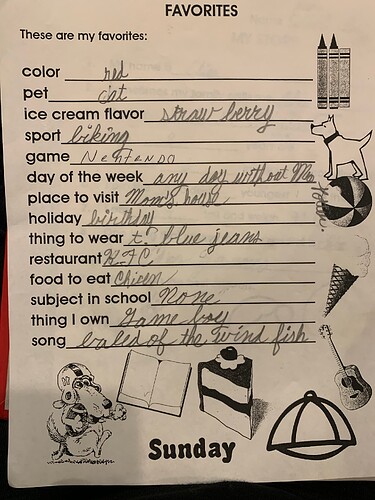 FAVORITES
These are my favorites:
color red
pet cat
ice cream flavor straw berry
sport biking
game Nentendo
day of the week any day without Mrs
place to visit Mom's house
holiday birthday
thing to wear t? blue jeans
restaurant K.F.C.
food to eat Chicen
subject in school None
thing I own Game boy
song baled of the wind fish
Sunday